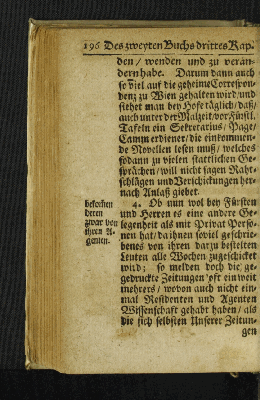 196 Des zweyten Buchs drittes Kap.
den / wenden und zu verän-
dern habe. Darum dann auch
so viel auf die geheime Correspon-
denz zu Wien gehalten wird / und
siehet man bey Hofe täglich / daß /
auch unter der Malzeit / vor Fürstl.
Tafeln ein Sekretarius / Page /
Cammerdiener / die einkommen-
de Novellen lesen muß / welches
sodann zu vielen stattlichen Ge-
sprächen / will nicht sagen Raht-
schlägen und Verschickungen her-
nach Anlaß giebet.
4. Ob nun wol bey Fürsten
und Herren es eine andere Ge-
legenheit als mit Privat Perso-
nen hat / da ihnen soviel geschrie-
benes von ihren darzu bestelten
Leuten alle Wochen zugeschicket
wird; so melden doch die ge-
gedruckte Zeitungen oft ein weit
mehrers / wovon auch nicht ein-
mal Residenten und Agenten
Wissenschaft gehabt haben / als
die sich selbsten Unserer Zeitun-
gen
bekomen
deren
zwar von
ihren A-
genten.